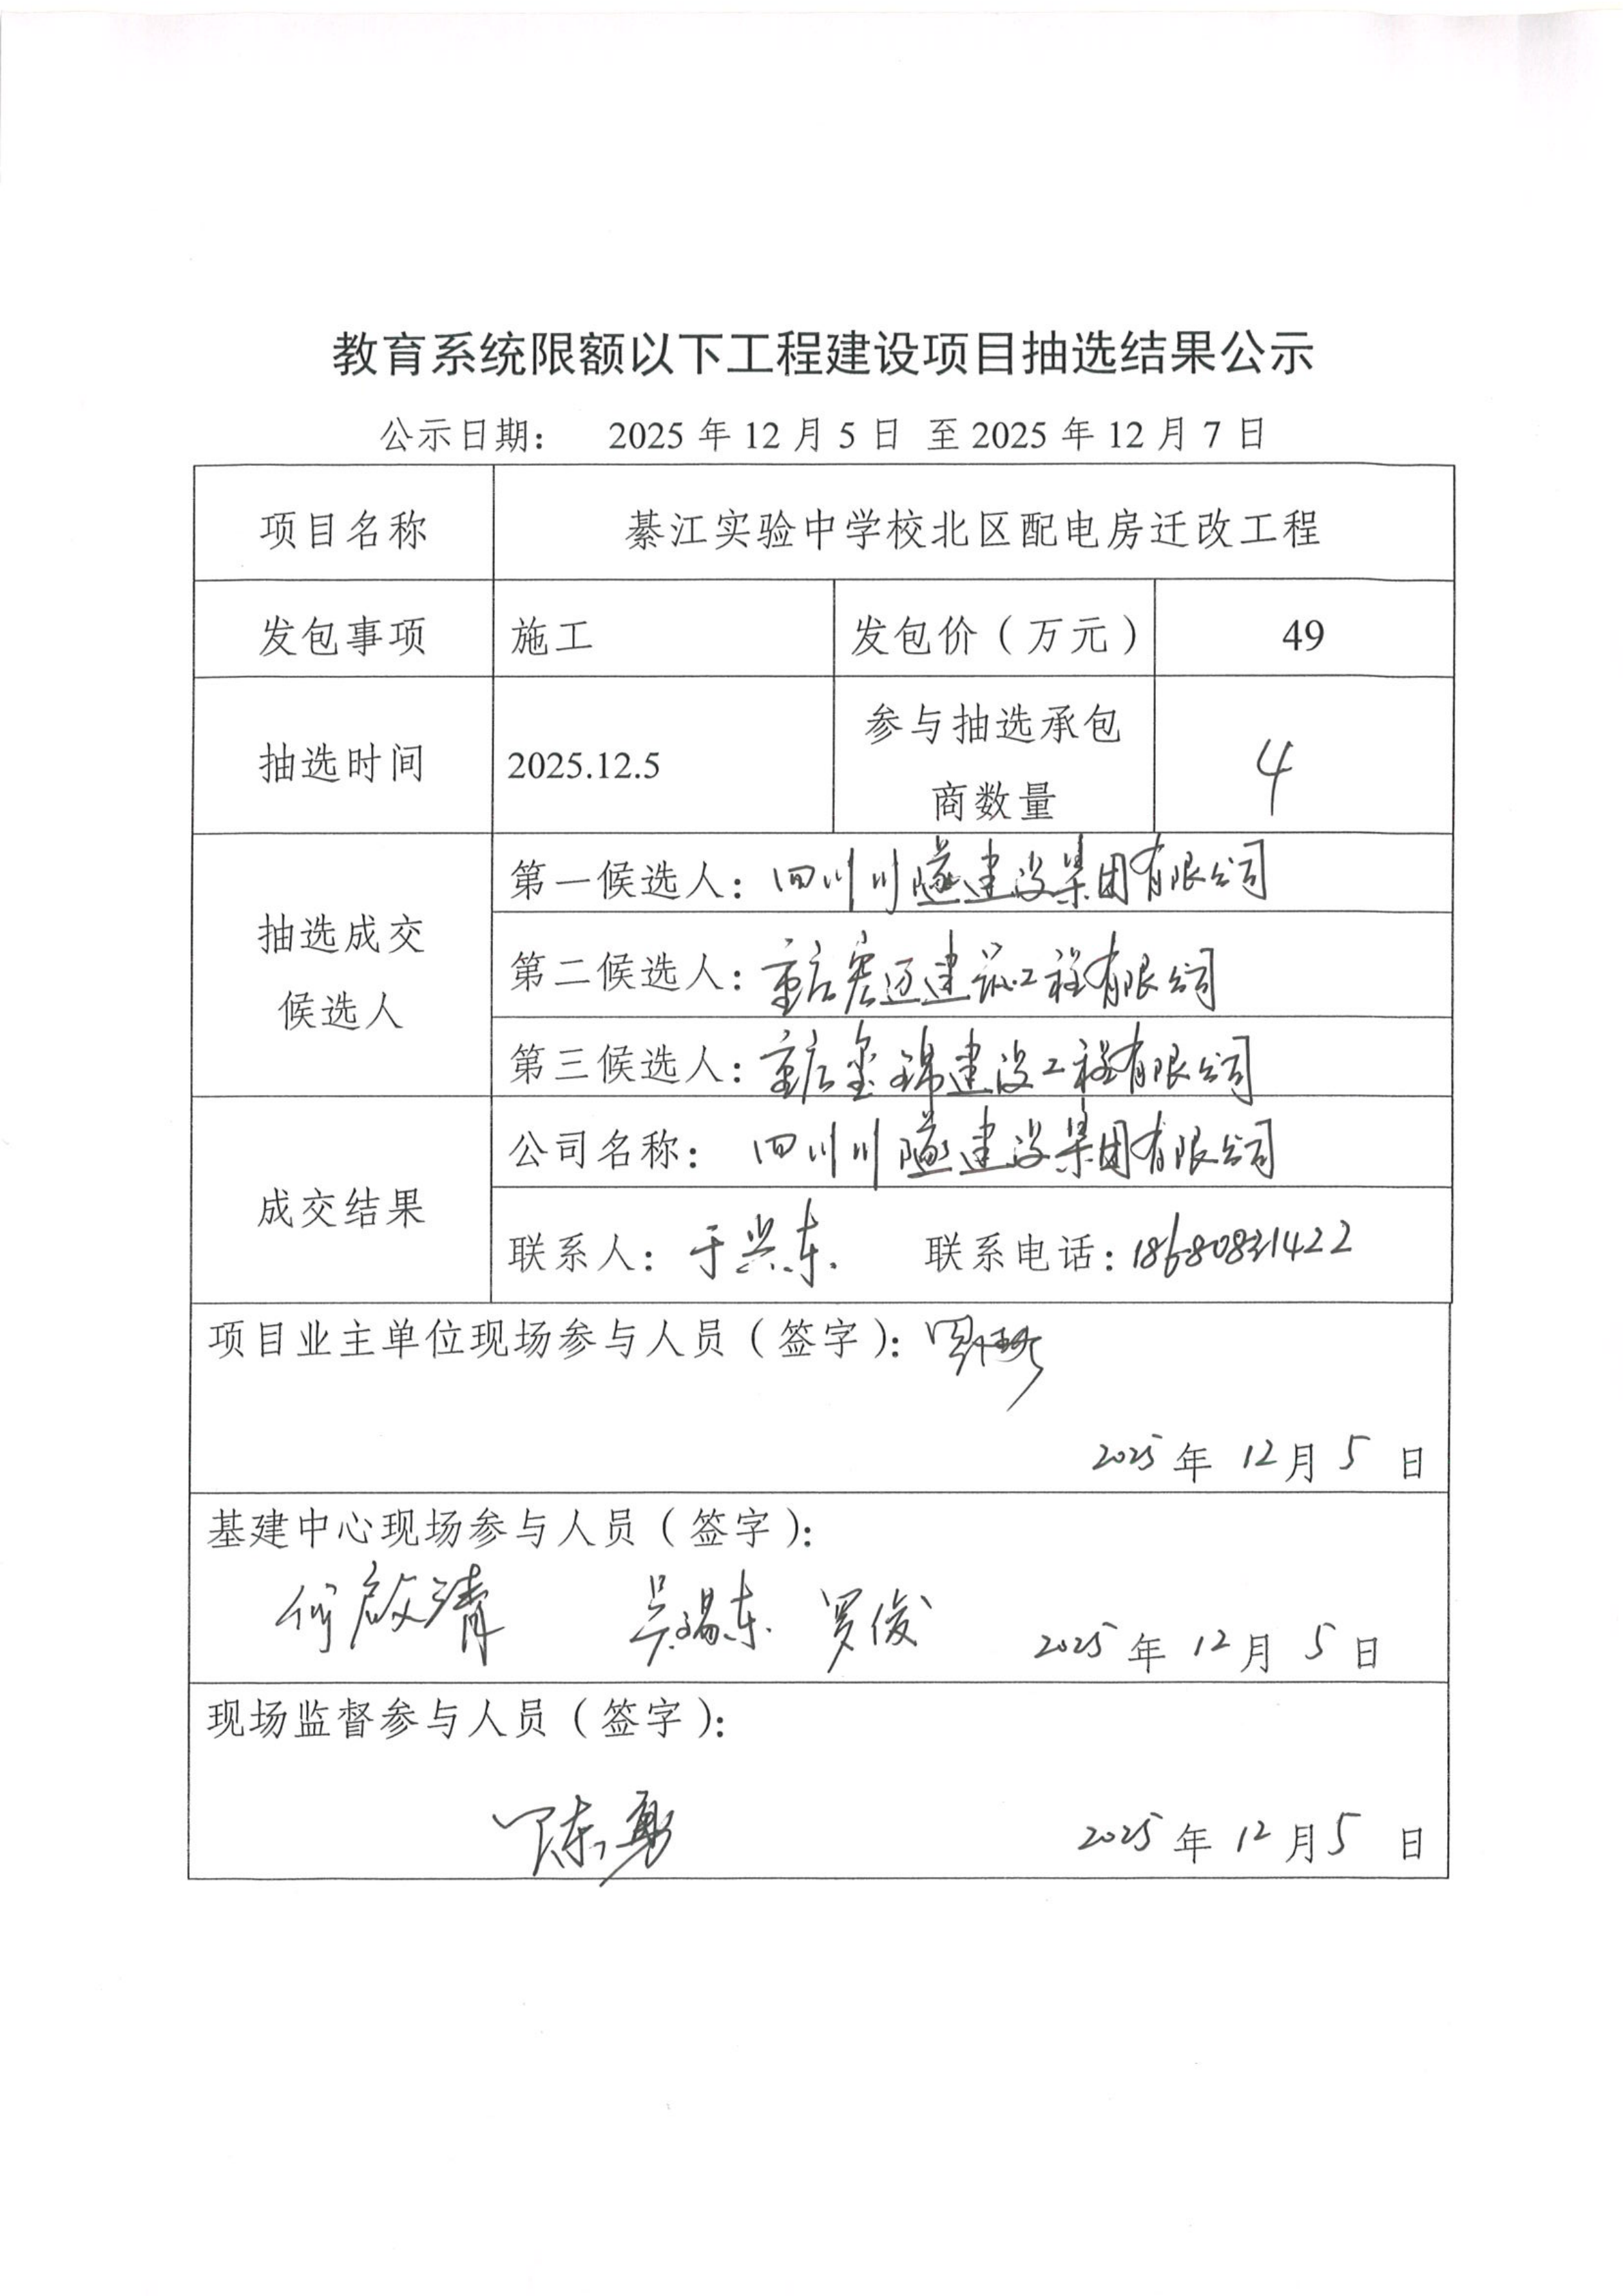 教育系统限额以下工程建设项目抽选结果公示
公示日期： 2025 年 12 月 5 日 至 2025 年 12 月 7 日
项目名称 綦江实验中学校北区配电房迁改工程
发包事项 施工 发包价（万元） 49
抽选时间 2025.12.5 参与抽选承包
商数量 4
抽选成交
候选人
第一候选人：四川川隧建设集团有限公司
第二候选人：重庆宏迈建筑工程有限公司
第三候选人：重庆玺锦建设工程有限公司
成交结果
公司名称： 四川川隧建设集团有限公司
联系人：于兴东 联系电话：18680831422
项目业主单位现场参与人员（签字）：
2025 年 12 月 5 日
基建中心现场参与人员（签字）：
何啟清 吴锡东 罗俊 2025 年 12 月 5 日
现场监督参与人员（签字）：
陈勇 2025 年 12 月 5 日